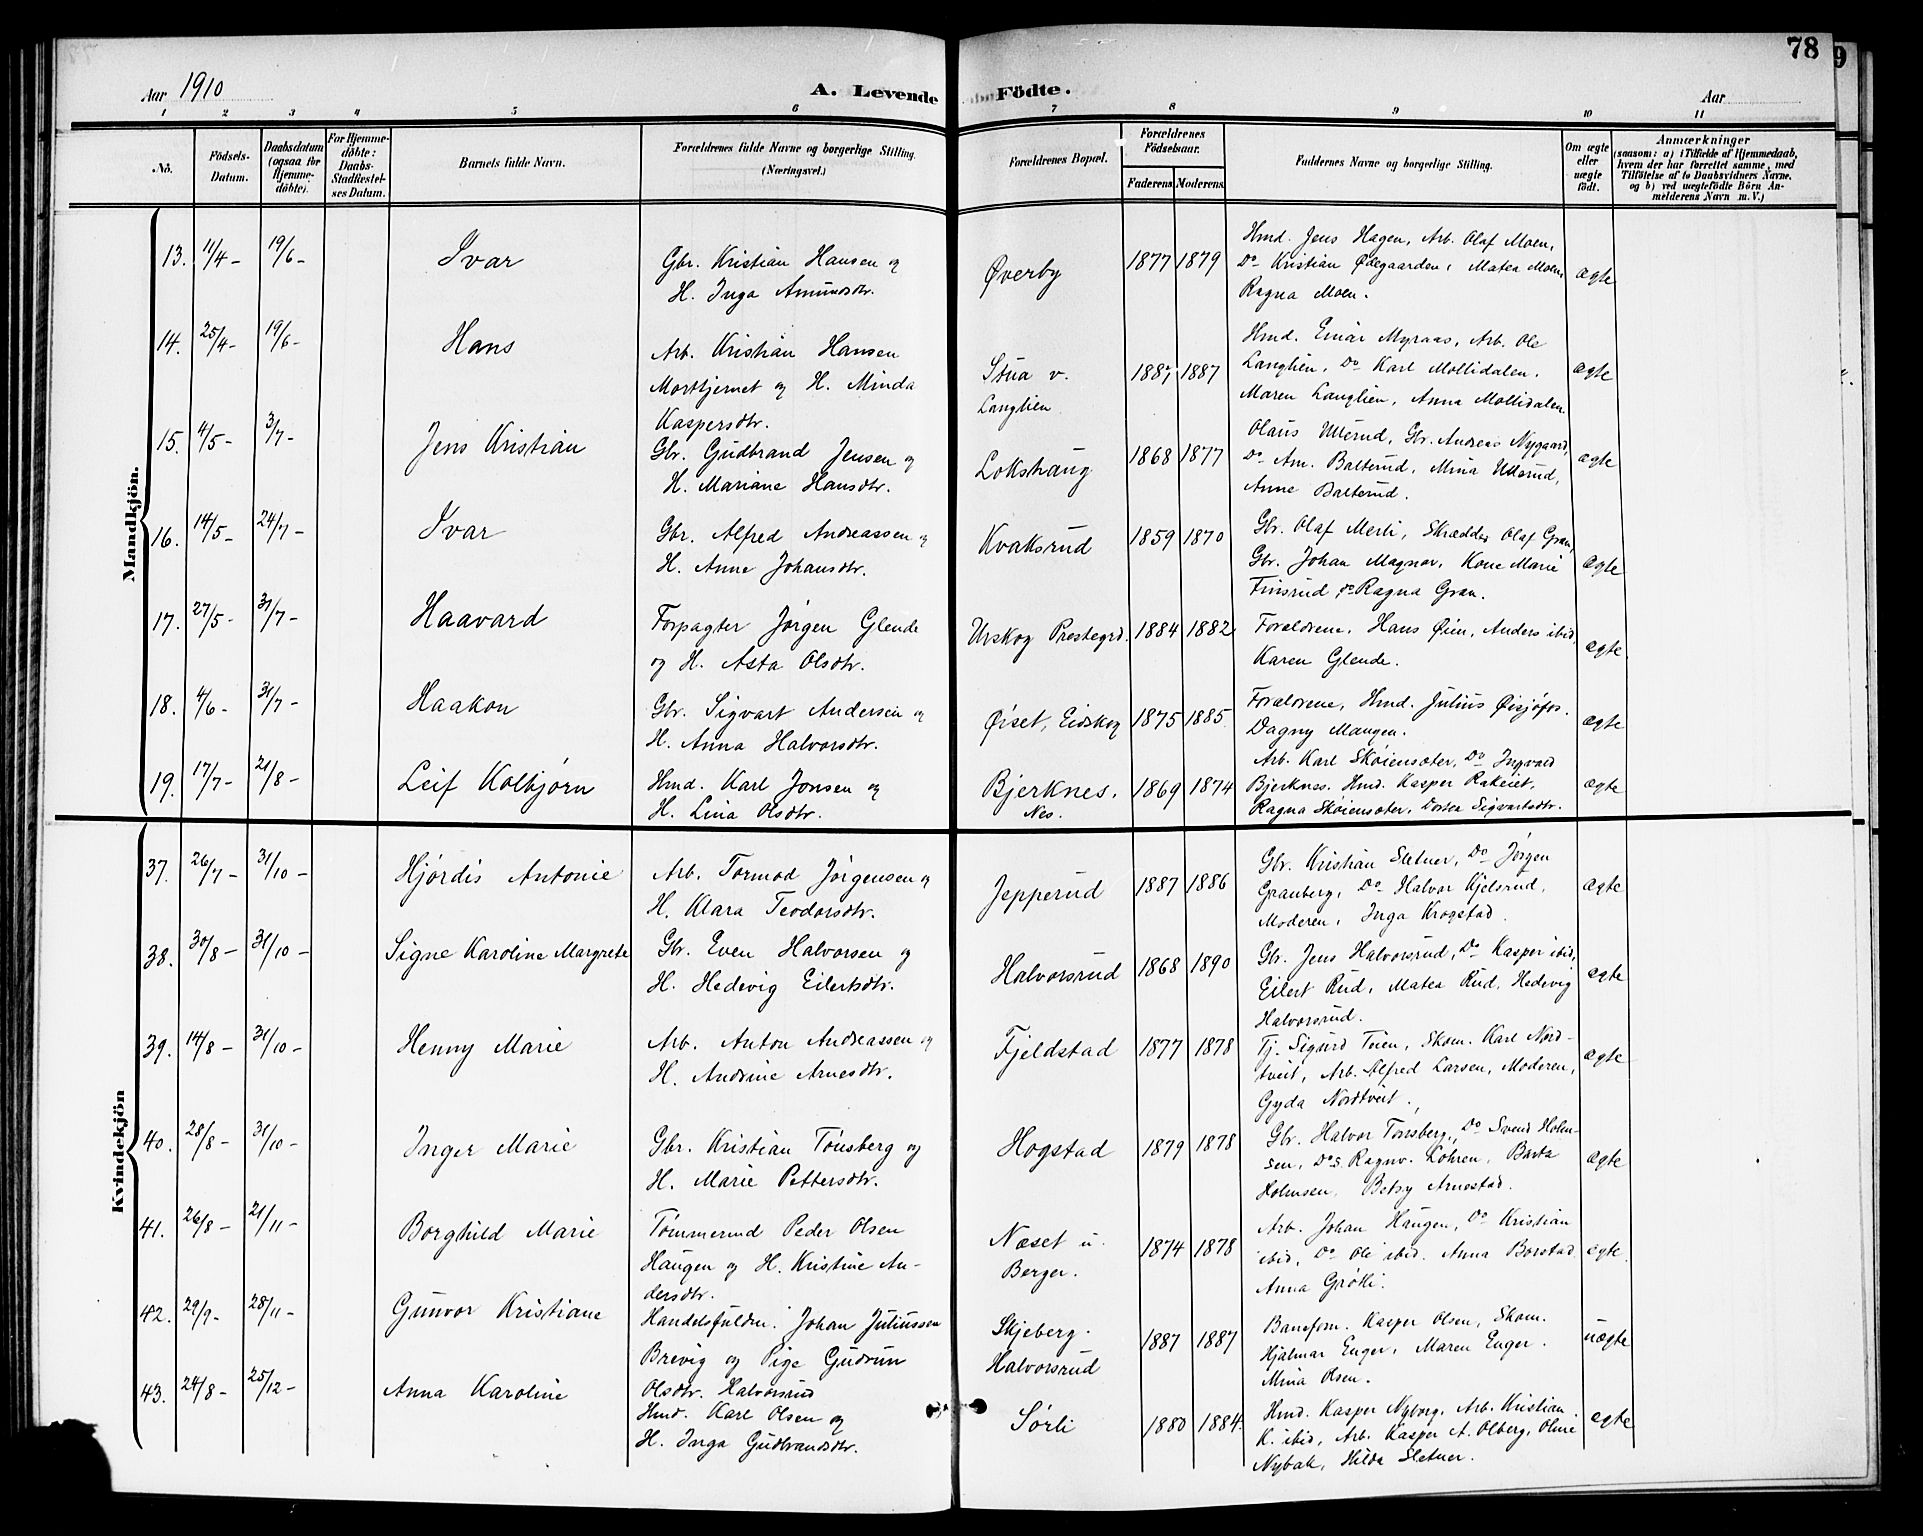 78
Aar 1910
A. Levende Födte.
Aar
1 2 3 4 5 6 7 8 9 10 11
No.
Födsels-
Datum.
Daabsdatum
(ogsaa for
Hjemme-
döbte).
For Hjemme-
döbte:
Daabs-
Stadfæstel-
ses Datum.
Barnets fulde Navn.
Forældrenes fulde Navne og borgerlige Stilling.
(Næringsvei.)
Forældrenes Bopæl.
Forældrenes
Födselsaar.
Faderens.
Moderens.
Faddernes Navne og borgerlige Stilling.
Om ægte
eller
uægte
födt.
Anmærkninger
(saasom: a) i Tilfælde af Hjemmedaab,
hvem der har forrettet samme, med
Tilföielse af to Daabsvidners Navne,
og b) ved uægtefödte Börn An-
melderens Navn m. V.)
Mandkjön.
13. 11/4 - 19/6 - Ivar
Gbr. Kristian Hansen og
H. Inga Amundsdtr.
Øverby 1877 1879
Hmd. Jens Hagen, Arb. Olaf Moen,
Do Kristian Ødegaarden, Matea Moen,
Ragna Moen.
ægte
14. 25/4 - 19/6 - Hans
Arb. Kristian Hansen
Morttjernet og H. Minda
Kaspersdtr.
Stua v.
Langlien
1887 1887
Hmd. Einar Myraas, Arb. Ole
Langlien, Do Karl Mollidalen,
Maren Langlien, Anna Mollidalen.
ægte
15. 4/5 - 3/7 - Jens Kristian
Gbr. Gudbrand Jensen og
H. Mariane Hansdtr.
Lokshaug 1868 1877
Olaus Ullerud, Gbr. Andreas Nygaard,
Do Am. Balterud, Mina Ullerud,
Anne Balterud.
ægte
16. 14/5 - 24/7 - Ivar
Gbr. Alfred Andreassen og
H. Anne Johansdtr.
Kvaksrud 1859 1870
Gbr. Olaf Merli, Skrædder Olaf Gran,
Gbr. Johan Magnor, Kone Marie
Finsrud, do Ragna Gran.
ægte
17. 27/5 - 31/7 - Haavard
Forpagter Jørgen Glende
og H. Asta Olsdtr.
Urskog Prestegrd. 1884 1882
Forældrene, Hans Øien, Anders ibid,
Karen Glende.
ægte.
18. 4/6 - 31/7 - Haakon
Gbr. Sigvart Andersen og
H. Anna Halvorsdtr.
Øiset, Eidskog 1875 1885
Forældrene, Hmd. Julius Øisjøfos.
Dagny Mangen.
ægte
19. 17/7 - 21/8 - Leif Kolbjørn
Hmd. Karl Jonsen og
H. Lina Olsdtr.
Bjerknes.
Nes.
1869 1874
Arb. Karl Skøiensæter, Do Ingvald
Bjerknes. Hmd. Kasper Rakeiet,
Ragna Skøiensæter, Dortea Sigvartsdtr.
ægte
Kvindekjön
37. 26/7 - 31/10 - Hjørdis Antonie
Arb. Tormod Jørgensen og
H. Klara Teodorsdtr.
Jepperud 1887 1886
Gbr. Kristian Sletner, Do Jørgen
Granberg, Do Halvor Kjelsrud,
Moderen, Inga Krogstad.
ægte
38. 30/8 - 31/10 - Signe Karoline Margrete
Gbr. Even Halvorsen og
H. Hedevig Eilertsdtr.
Halvorsrud 1868 1890
Gbr. Jens Halvorsrud, Do Kasper ibid,
Eilert Rud, Matea Rud, Hedevig
Halvorsrud.
ægte
39. 14/8 - 31/10 - Henny Marie
Arb. Anton Andreassen og
H. Andrine Arnesdtr.
Fjeldstad 1877 1878
Tj. Sigurd Teien, Skom. Karl Nord-
tveit, Arb. Alfred Larsen, Moderen,
Gyda Nordtveit.
ægte
40. 28/8 - 31/10 - Inger Marie
Gbr. Kristian Tønsberg og
H. Marie Pettersdtr.
Hogstad 1879 1878
Gbr. Halvor Tønsberg, Do Svend Holm-
sen, Do s. Ragnv. Lohren, Barta
Holmsen, Betsy Arnestad.
ægte
41. 26/8 - 21/11 - Borghild Marie
Tømmermd Peder Olsen
Haugen og H. Kristine An-
dersdtr.
Næset u.
Berger.
1874 1878
Arb. Johan Haugen, Do Kristian
ibid, Do Ole ibid. Anna Borstad
Anna Grøtli.
ægte.
42. 29/9 - 28/11 - Gunvor Kristiane
Handelsfuldm. Johan Juliussen
Brevig og Pige Gudrun
Olsdtr. Halvorsrud
Skjeberg.
Halvorsrud
1887 1887
Baneform. Kasper Olsen, Skom.
Hjalmar Enger, Maren Enger.
Mina Olsen.
uægte
43. 24/8 - 25/12 - Anna Karoline
Hmd. Karl Olsen og
H. Inga Gudbrandsdtr.
Sørli 1880 1884.
Hmd. Kasper Nyborg, Arb. Kristian
K. ibid, Arb. Kasper A. Olberg, Oline
Nybak, Hilda Sletner.
ægte